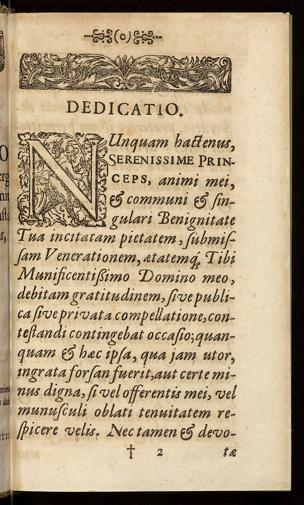 (o)
DEDICATIO.
NUnquam hactenus,
SERENISSIME PRIN-
CEPS, animi mei,
& communi & sin-
gulari Benignitate
Tua incitatam pietatem, submis-
sam Venerationem, ætatemq́; Tibi
Munificentissimo Domino meo,
debitam gratitudinem, sive publi-
ca sive privata compellatione, con-
testandi contingebat occasio; quan-
quam & hæc ipsa, qua jam utor,
ingrata forsan fuerit, aut certe mi-
nus digna, si vel offerentis mei, vel
munusculi oblati tenuitatem re-
spicere velis. Nec tamen & devo-
† 2 tæ